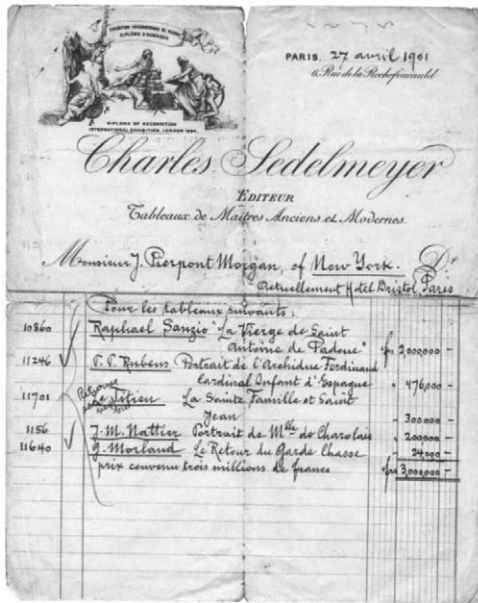 EXPOSITION INTERNATIONALE
DIPLÔME D'HONNEUR
DIPLOMA OF RECOGNITION
INTERNATIONAL EXHIBITION, LONDON
PARIS, 27 avril 1901
6, Rue de la Rochefoucauld
Charles Sedelmeyer
EDITEUR
Tableaux de Maîtres Anciens et Modernes.
Monsieur J. Pierpont Morgan, of New York. Dt
Actuellement Hotel Bristol, Paris
Pour les tableaux suivants:
10860 Raphael Sanzio "La Vierge de Saint
Antoine de Padoue" frs 2,000,000 –
11246 P. P. Rubens Portrait de l'Archiduc Ferdinand
Cardinal Infant d'Espagne " 476,000 –
11701 Le Titien La Sainte Famille et Saint
Jean " 300000 –
1156 J. M. Nattier Portrait de Mlle de Charolais " 200000 –
11640 G. Morland Le Retour du Garde Chasse " 24,000 –
prix convenu trois millions de francs frs 3,000,000 –